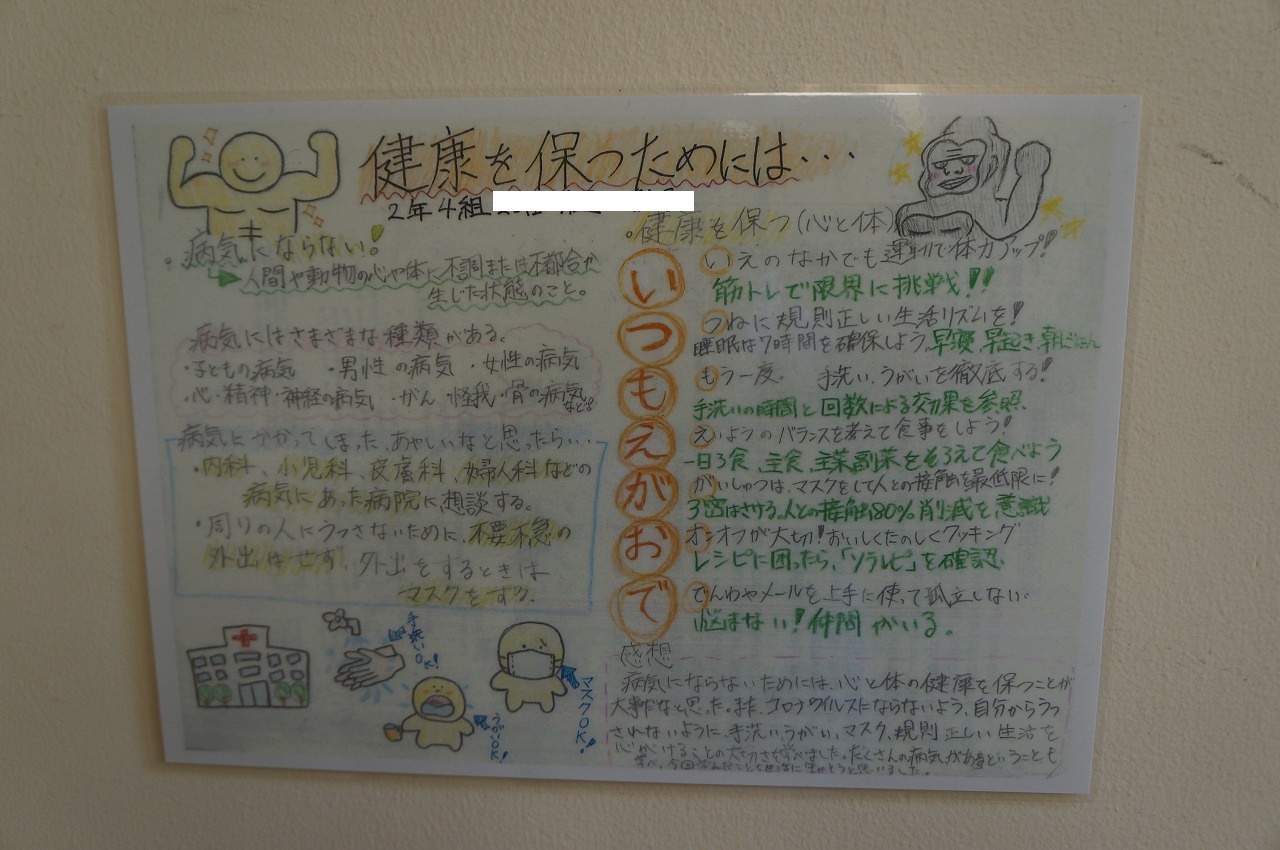 健康を保つためには・・・
2年4組
・病気にならない!
人間や動物の心や体に不調または不都合が
生じた状態のこと。
病気にはさまざまな種類がある。
・子どもの病気 ・男性の病気 ・女性の病気
・心・精神・神経の病気 ・がん・怪我・骨の病気など
病気にかかってしまった、あやしいなと思ったら・・・
・内科、小児科、皮膚科、婦人科などの
病気にあった病院に想談する。
・周りの人にうつさないために、不要不急の
外出はせず、外出をするときは
マスクをする。
手洗いOK!
うがいOK!
マスクOK!
・健康を保つ(心と体)
いつもえがおで
いえのなかでも運動で体力アップ!
筋トレで限界に挑戦!!
つねに規則正しい生活リズムを!
睡眠は7時間を確保しよう、早寝、早起き、朝ごはん
もう一度、手洗い、うがいを徹底する!
手洗いの時間と回数による効果を参照、
えいようのバランスを考えて食事をしよう!
一日3食、主食、主菜副菜をそろえて食べよう
がいしゅつは、マスクをして人との接触を最低限に!
3密はさける、人との接触80%削減を意識
オンオフが大切!おいしくたのしくクッキング
レシピに困ったら、「ソラレピ」を確認、
でんわやメールを上手に使って孤立しない・
悩まない!仲間がいる。
感想
病気にならないためには、心と体の健康を保つことが
大事だなと思った。また、コロナウイルスにならないよう、自分からうつ
されないように、手洗いうがい、マスク、規則正しい生活を
心がけることの大切さを学べました。たくさんの病気があるということも
学べ、今回学んだことを生活に生かそうと思いました。